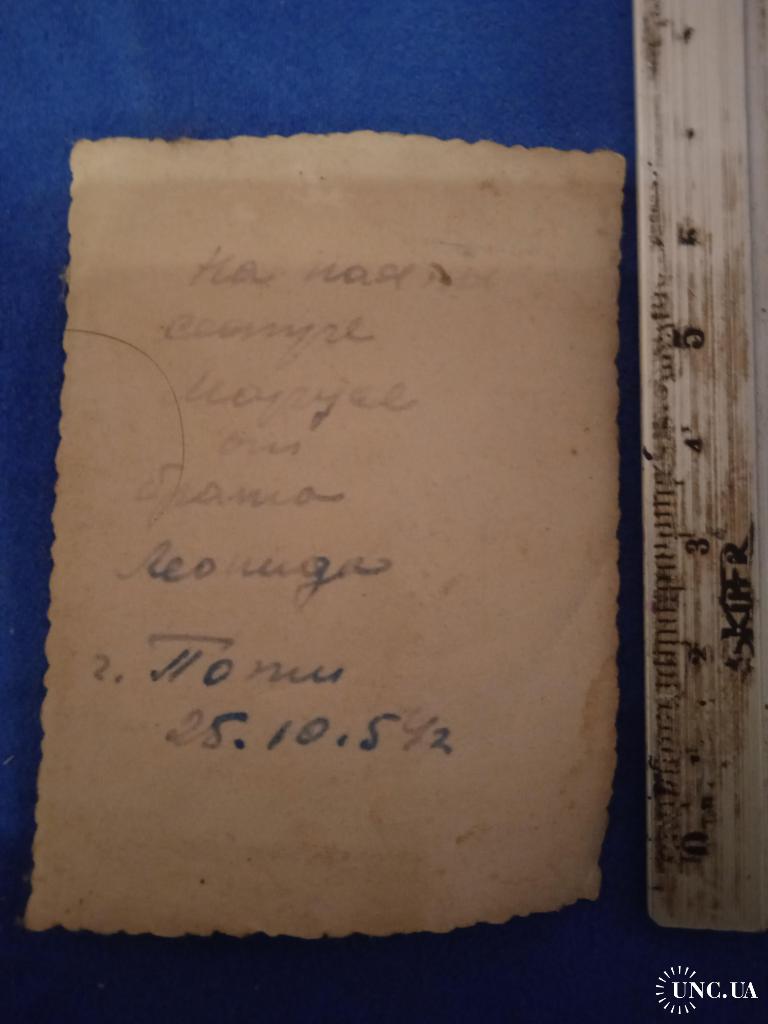 На память
сестре
Марусе
от
брата
Леонида
г. Поти
25.10.54г
5
4
3
2
1
0
SKIPER
UNC.UA